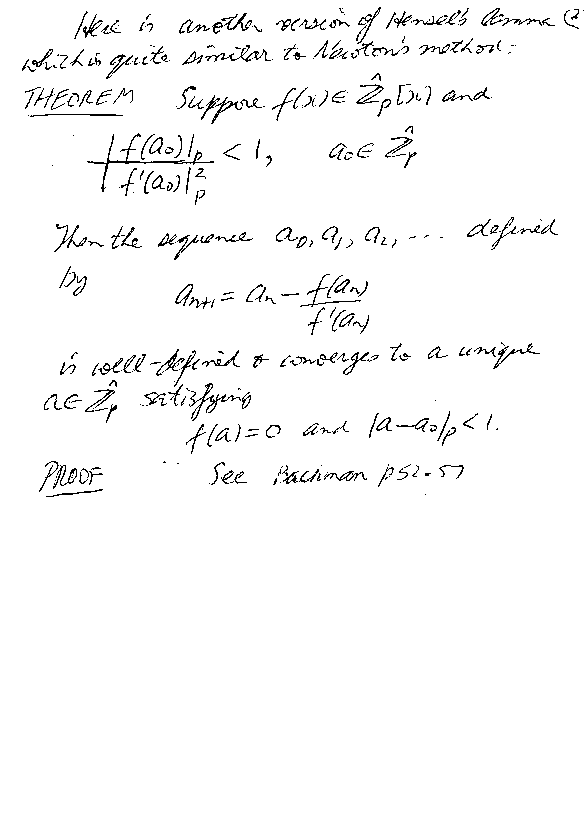 Here is another version of Hensel's lemma (2
which is quite similar to Newton's method:
THEOREM Suppose f(x) ∈ Ẑ_p[x] and
|f(a_0)|_p / |f'(a_0)|_p^2 < 1, a_0 ∈ Ẑ_p
Then the sequence a_0, a_1, a_2, ... defined
by a_{n+1} = a_n − f(a_n) / f'(a_n)
is well-defined & converges to a unique
a ∈ Ẑ_p satisfying
f(a) = 0 and |a − a_0|_p < 1.
PROOF See Bachman p52-57